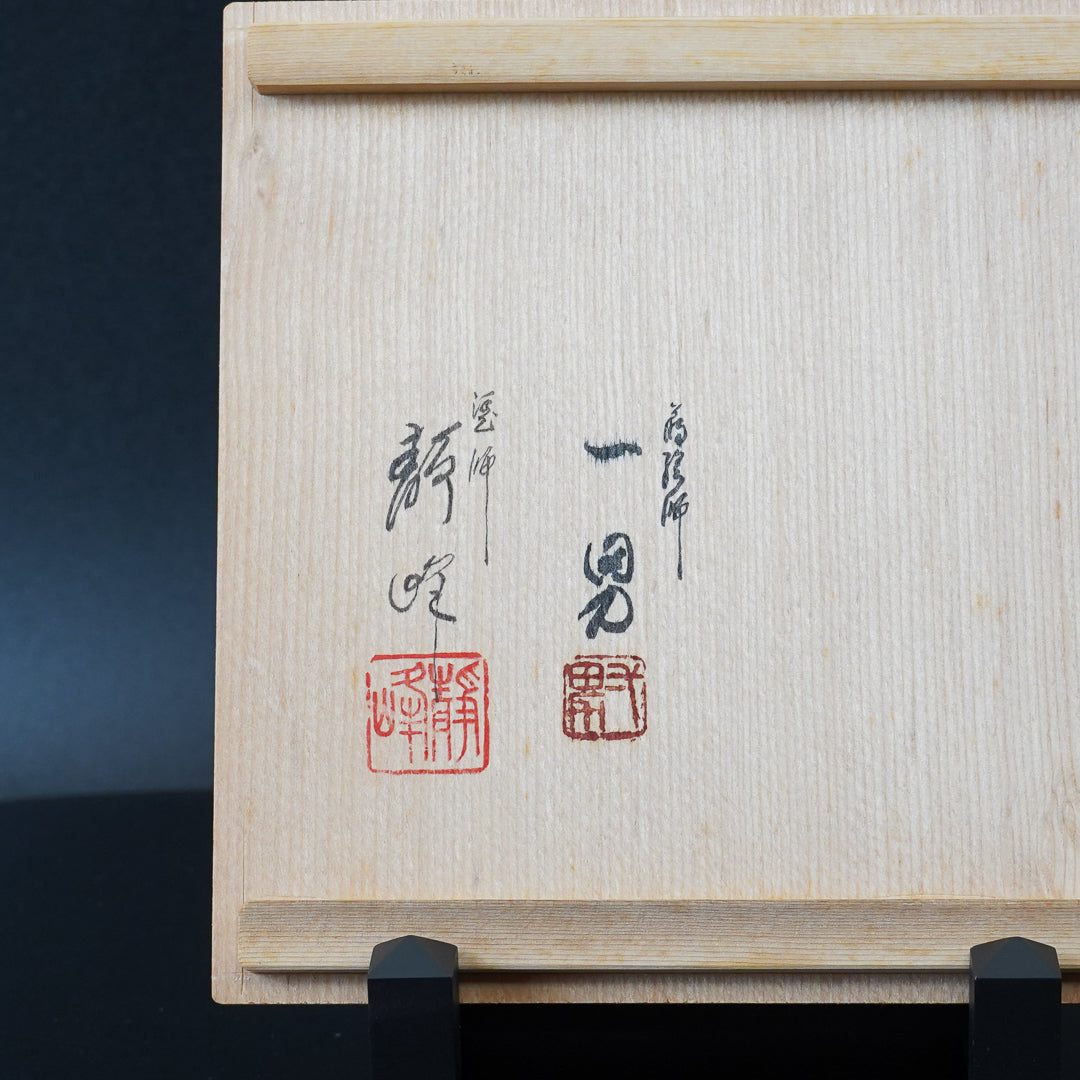 蒔絵師
一男
塗師
静峰
静峰